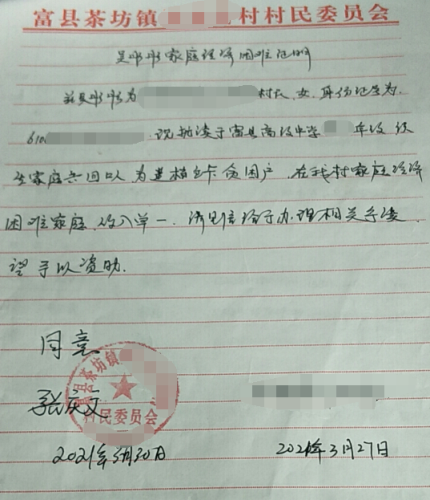 富县茶坊镇 村村民委员会
家庭经济困难证明
兹 为 村人,女,身份证号为
610 ,现就读于富县高级中学 年级,该
生家庭共四口人,为建档立卡贫困户,在我村家庭经济
困难家庭,收入单一,请 给予办理相关手续,
望予以资助。
同意
张庆文
富县茶坊镇
村民委员会
2021年3月30日
2021年3月27日